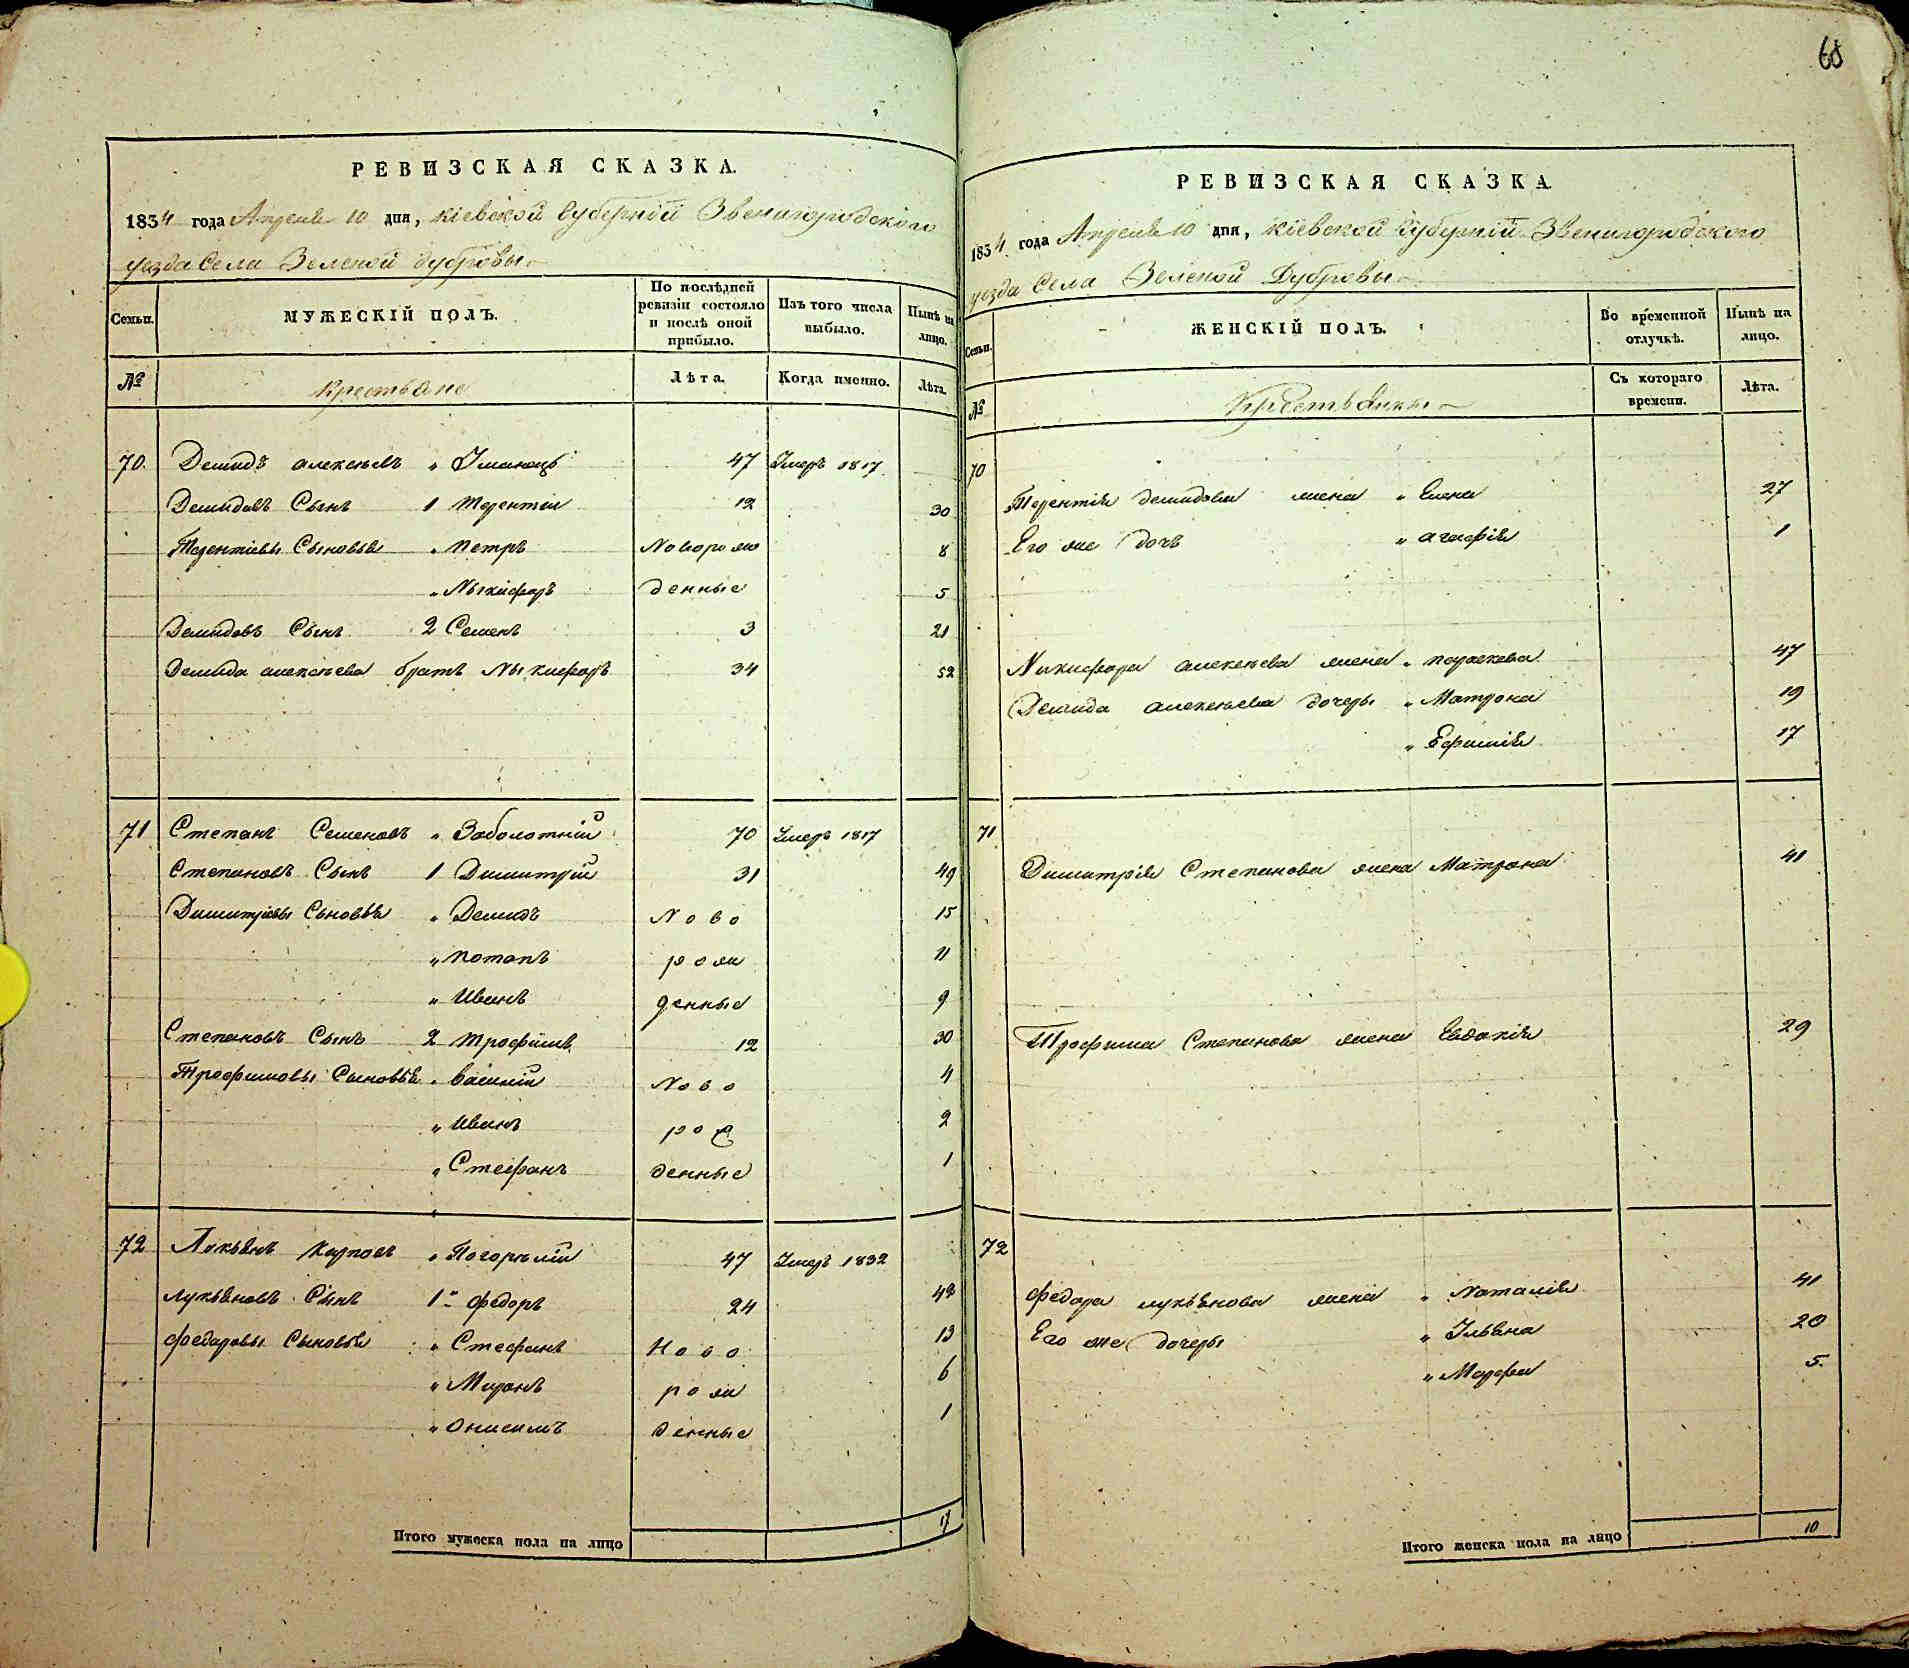 68
РЕВИЗСКАЯ СКАЗКА.
1834 года Апреля 10 дня, Кіевской Губерніи Звенигородскаго
уезда Села Зеленой Дубровы
Семьи. МУЖЕСКІЙ ПОЛЪ. По послѣдней ревизіи состояло и послѣ оной прибыло. Изъ того числа выбыло. Нынѣ на лицо.
№ Крестьяне Лѣта. Когда именно. Лѣта.
70. Демидъ алексѣевъ „ Уманецъ 47 Умеръ 1817
Демидовъ Сынъ 1 Терентіи 12 30
Терентіевы Сыновья „ Петръ Новорож 8
„ Ныкифоръ денные 5
Демидовъ Сынъ 2 Семенъ 3 21
Демида алексѣева братъ Ныкифоръ 34 52
71 Степанъ Семеновъ „ Заболотній 70 Умеръ 1817
Степановъ Сынъ 1 Димитрій 31 49
Димитріевы Сыновья „ Демидъ Ново 15
„ Потапъ рож 11
„ Иванъ денные 9
Степановъ Сынъ 2 Трофимъ 12 30
Трофимовы Сыновья „ Василій Ново 4
„ Иванъ рож 2
„ Стефанъ денные 1
72 Лукьянъ Карповъ „ Погорѣлій 47 Умеръ 1832
Лукьяновъ Сынъ 1„ Федоръ 24 42
Федоровы Сыновья „ Стефанъ Ново 13
„ Миронъ рож 6
„ Онисимъ денные 1
Итого мужеска пола на лицо 17
РЕВИЗСКАЯ СКАЗКА
1834 года Апреля 10 дня, Кіевской Губерніи Звенигородского
уезда Села Зеленой Дубровы
Семьи. ЖЕНСКІЙ ПОЛЪ. Во временной отлучкѣ. Нынѣ на лицо.
№ Крестьянки Съ котораго времени. Лѣта.
70
Терентія демидова жена „ Елена 27
Его же дочь „ агафія 1
Никифора алексѣева жена „ параскева 47
Демида алексѣева дочеры „ Матрона 19
„ Ефимія 17
71
Димитрія Степанова жена Матрона 41
Трофима Степанова жена Евдокія 29
72
Федора лукьянова жена „ Наталія 41
Его же дочеры „ Ульяна 20
„ Марфа 5.
Итого женска пола на лицо 10